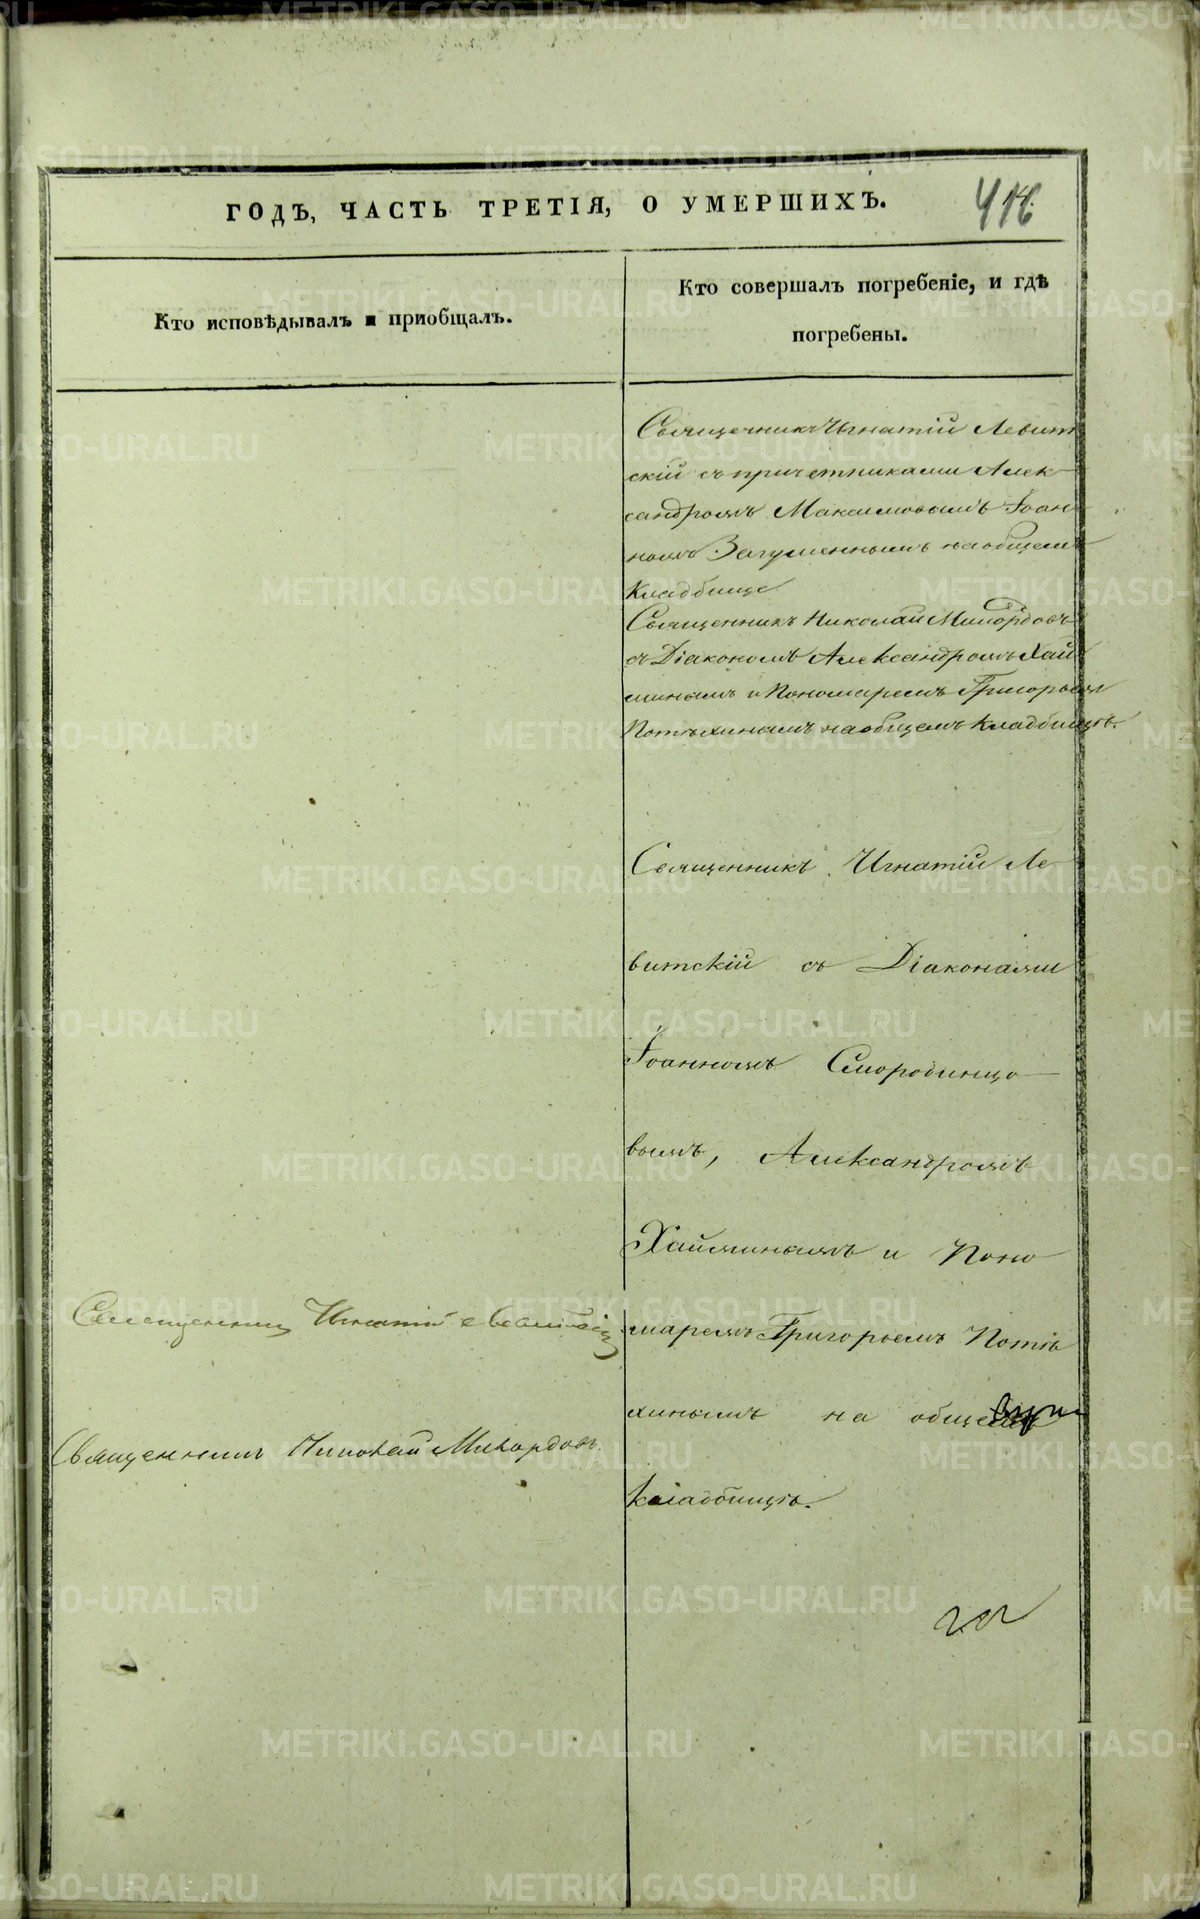 ГОДЪ, ЧАСТЬ ТРЕТІЯ, О УМЕРШИХЪ.
Кто исповѣдывалъ и приобщалъ.
Кто совершалъ погребеніе, и гдѣ
погребены.
Священникъ Игнатій Левит
скій съ причетниками Алек-
сандромъ Максимовымъ Іоан
номъ Загуменнымъ на общемъ
кладбище
Священникъ Николай Милордовъ
съ Діакономъ Александромъ Хай
минымъ и Пономаремъ Григорьем
Потѣхинымъ на общемъ кладбищѣ.
Священникъ Игнатій Ле-
витскій съ Діаконами
Іоанномъ Смородинцо-
вымъ, Александромъ
Хайминымъ и Поно
маремъ Григорьемъ Потѣ
хинымъ на общемъ
кладбищѣ.
Священникъ Игнатій Левитскій
Священникъ Николай Милордовъ.
METRIKI.GASO-URAL.RU